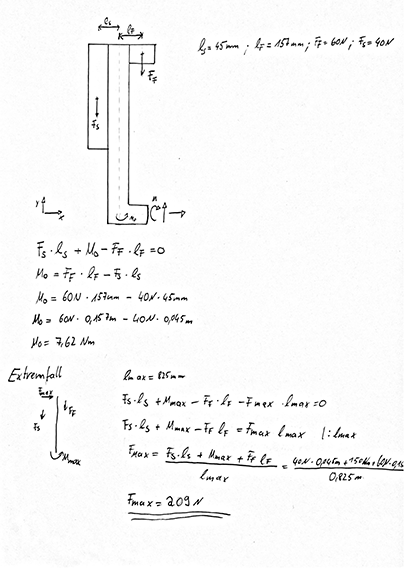 ls lF
ls = 45mm ; lF = 157mm ; FF = 60N ; Fs = 40N
FF
Fs
y
x
M
M0
Fs · ls + M0 - FF · lF = 0
M0 = FF · lF - Fs · ls
M0 = 60N · 157mm - 40N · 45mm
M0 = 60N · 0,157m - 40N · 0,045m
M0 = 7,62 Nm
Extremfall
lmax = 825mm
Fmax
Fs FF
Mmax
Fs · ls + Mmax - FF · lF - Fmax · lmax = 0
Fs · ls + Mmax - FF lF = Fmax lmax |: lmax
Fmax = Fs · ls + Mmax + FF lF / lmax = 40N · 0,045m + 150Nm + 60N · 0,15 / 0,825m
Fmax = 209 N